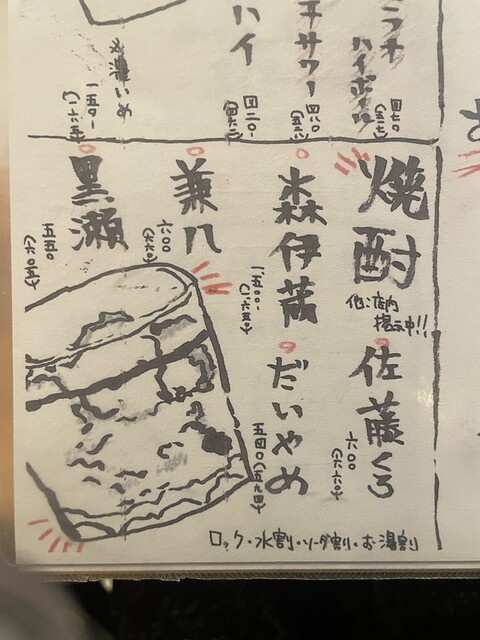 ハイボール
四七〇
サワー
四八〇
ハイ
四二〇
濃いめ
一五〇
焼酎
他、店内
掲示中!!
佐藤くろ
六〇〇
(六六〇)
森伊蔵
一五〇〇
(一六五〇)
だいやめ
五四〇
(五九四)
兼八
六〇〇
(六六〇)
黒瀬
五五〇
(六〇五)
ロック・水割・ソーダ割・お湯割